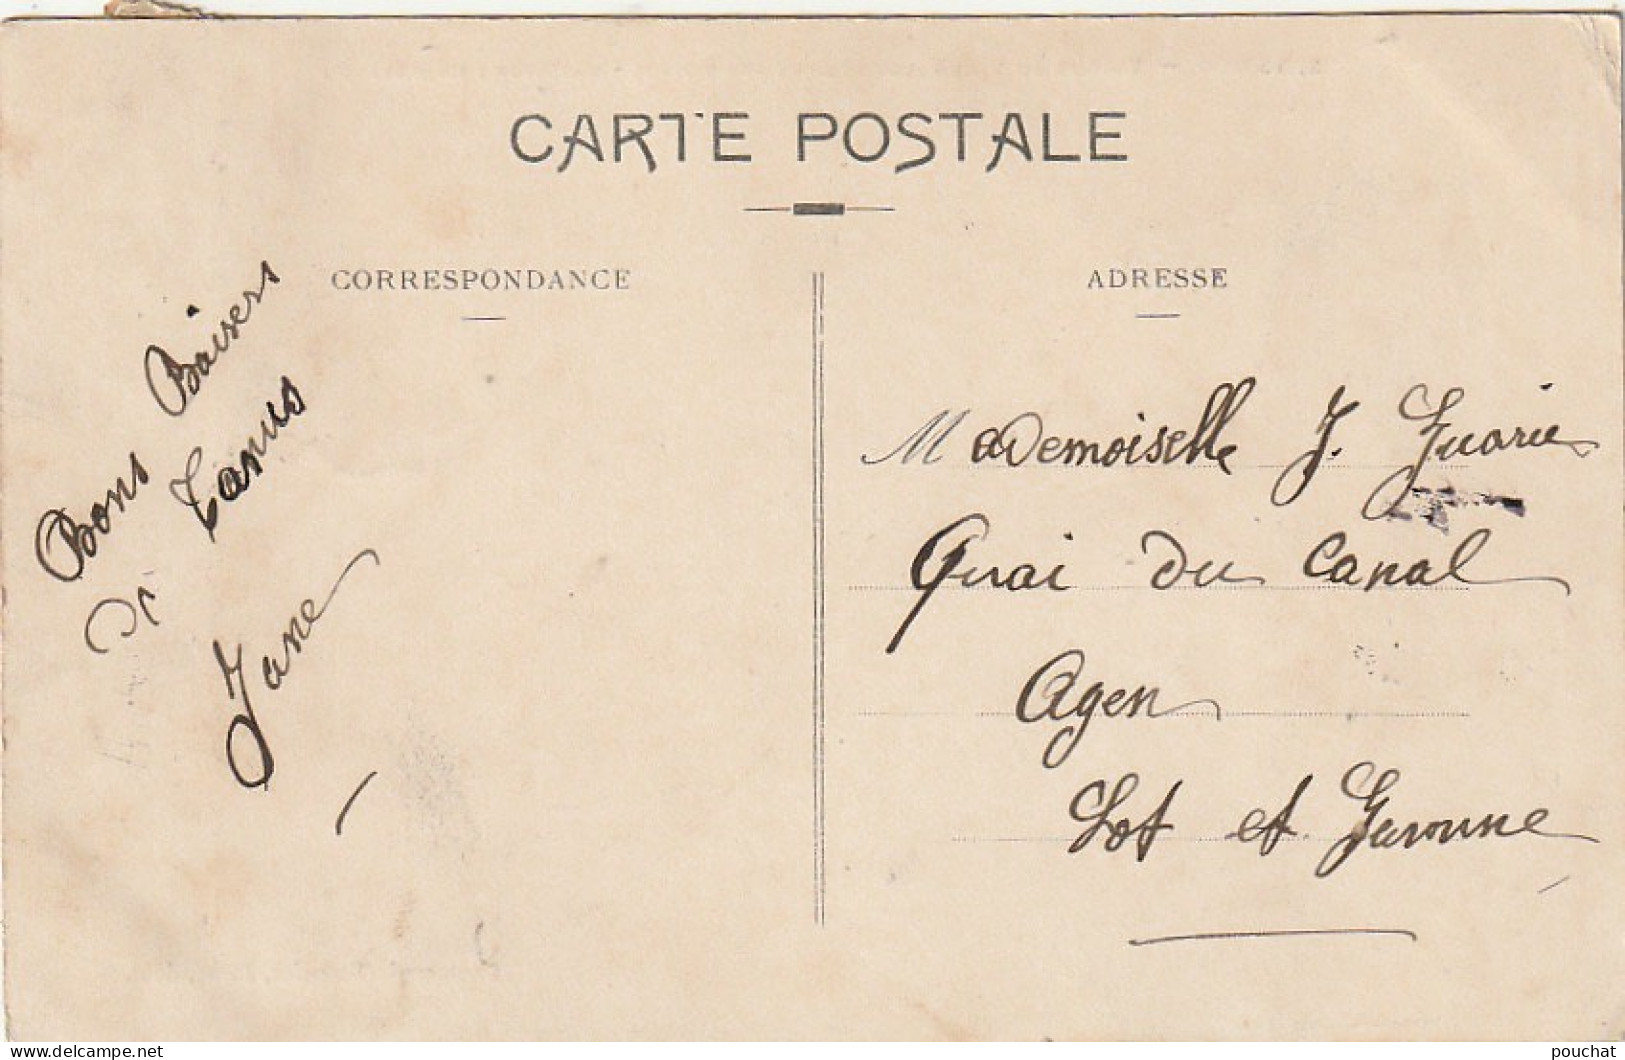 CARTE POSTALE
CORRESPONDANCE
ADRESSE
Bons Baisers
de Tanus
Jane
Mademoiselle J.
Quai du Canal
Agen
Lot et Garonne
delcampe.net
pouchat